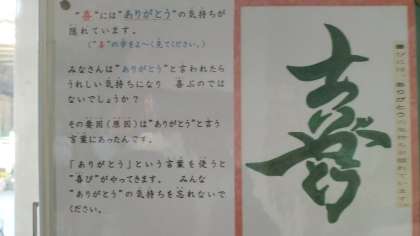 "喜"には"ありがとう"の気持ちが
隠れています。
("喜"の字をよ〜く見てください。)
みなさんは"ありがとう"と言われたら
うれしい気持ちになり 喜ぶのでは
ないでしょうか？
その要因(原因)は"ありがとう"と言う
言葉にあったんです。
「ありがとう」という言葉を使うと
"喜び"がやってきます。 みんな
"ありがとう"の気持ちを忘れないで
ください。
喜びには、ありがとうの気持ちが隠れています
ありがとう